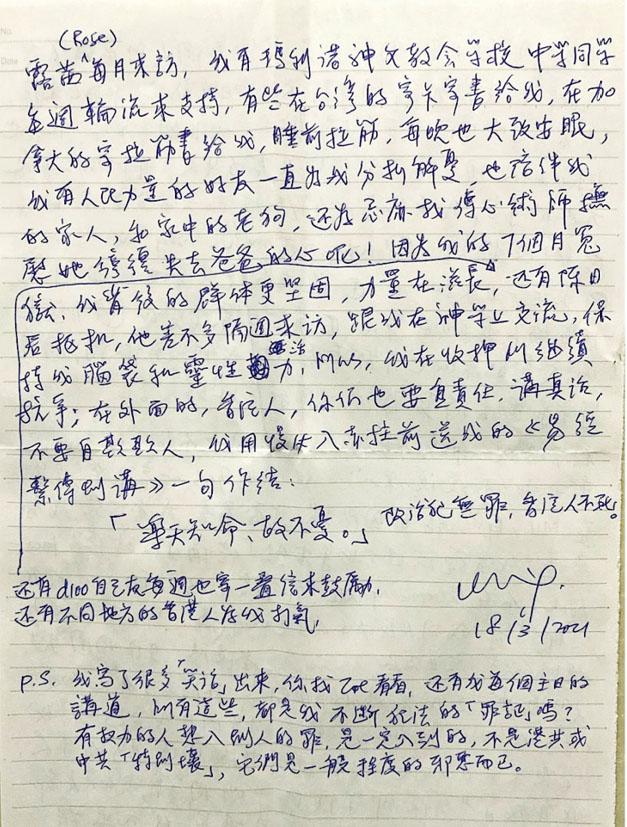 (Rose)
露茜^每月來訪, 我有瑪利諾神父教會學校 中學同學
每週輪流來支持, 有些在台灣的寄卡寄書給我, 在加
拿大的寄拉筋書給我, 睡前拉筋, 每晚也大致安眠,
我有人民力量的好友一直為我分析解憂, 也陪伴我
的家人, 和家中的老狗, 還為忌廉找傳心術師撫
慰她彷彿失去爸爸的心呢! 因為我的7個月冤
獄, 我背後的群体更堅固, 力量在滋長, 還有陳日
君樞机, 他差不多隔週來訪, 跟我在神學上交流, 保
持我腦袋和靈性活力, 所以, 我在收押所繼續
抗爭; 在外面的, 香港人, 你們也要負責任, 講真話,
不要自欺欺人, 我用 入赤柱前送我的《易經
繫傳別講》一句作結:
「樂天知命、故不憂。」 政治犯無罪, 香港人不死。
還有d100台 友每週也寄一疊信來鼓勵,
還有不同地方的香港人為我打氣,
18/3/2021
P.S. 我寫了很多「笑話」出來, 你找Zoe看看, 還有我每個主日的
講道, 所有這些, 都是我不斷犯法的「罪証」嗎?
有权力的人想入別人的罪, 是一定入到的, 不是港共或
中共「特別壞」, 它們是一般程度的邪惡而已。